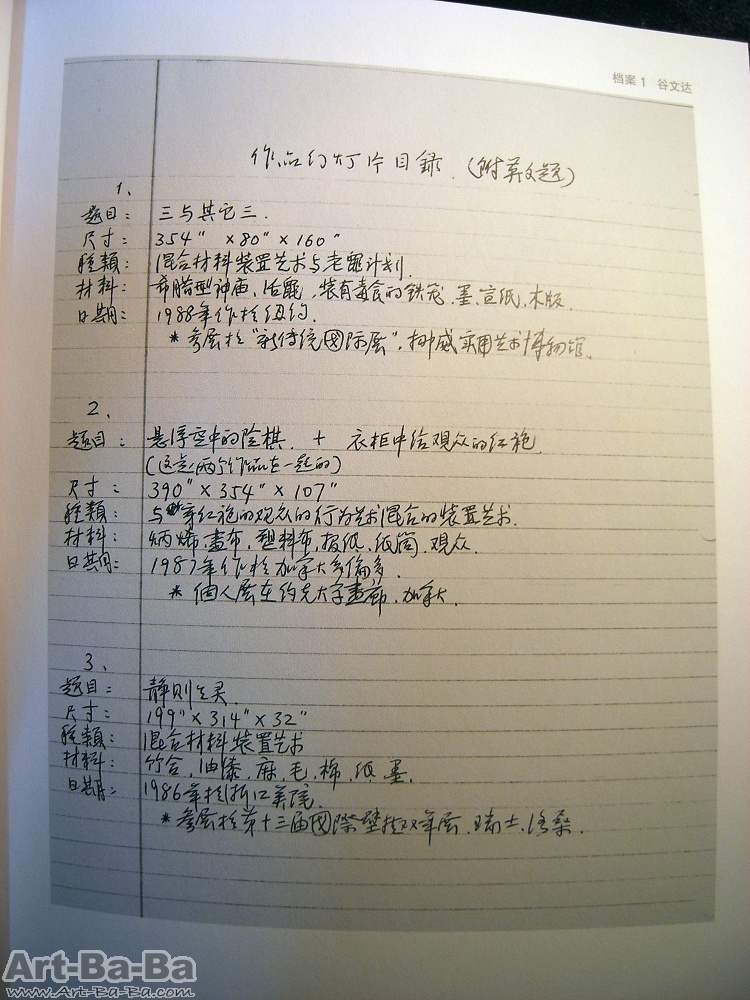 档案 1 谷文达
作品幻灯片目録.(附英文题)
1、
题目: 三与其它三.
尺寸: 354" ×80"×160"
種類: 混合材料装置艺术与老鼠计划.
材料: 希腊型神庙、活鼠,装有毒食的铁笼、墨、宣纸、木版.
日期: 1988年作於纽约.
* 参展於"新传统國际展",挪威实用艺术博物馆.
2、
题目: 悬浮空中的险棋. + 衣柜中给观众的红袍.
(这是两个作品在一起的)
尺寸: 390"×354"×107"
種類: 与穿红袍的观众的行为艺术混合的装置艺术.
材料: 炳烯、畫布、塑料布、报纸、纸筒、观众.
日期: 1987年作於加拿大多倫多.
* 個人展在约克大学畫廊.加拿大.
3、
题目: 静则生灵.
尺寸: 199"×314"×32"
種類: 混合材料装置艺术
材料: 竹、油漆、麻、毛、棉、纸、墨.
日期: 1986年於浙江美院.
* 参展於第十三届國際壁挂双年展.瑞士.洛桑.
Art-Ba-Ba
www.Art-Ba-Ba.com